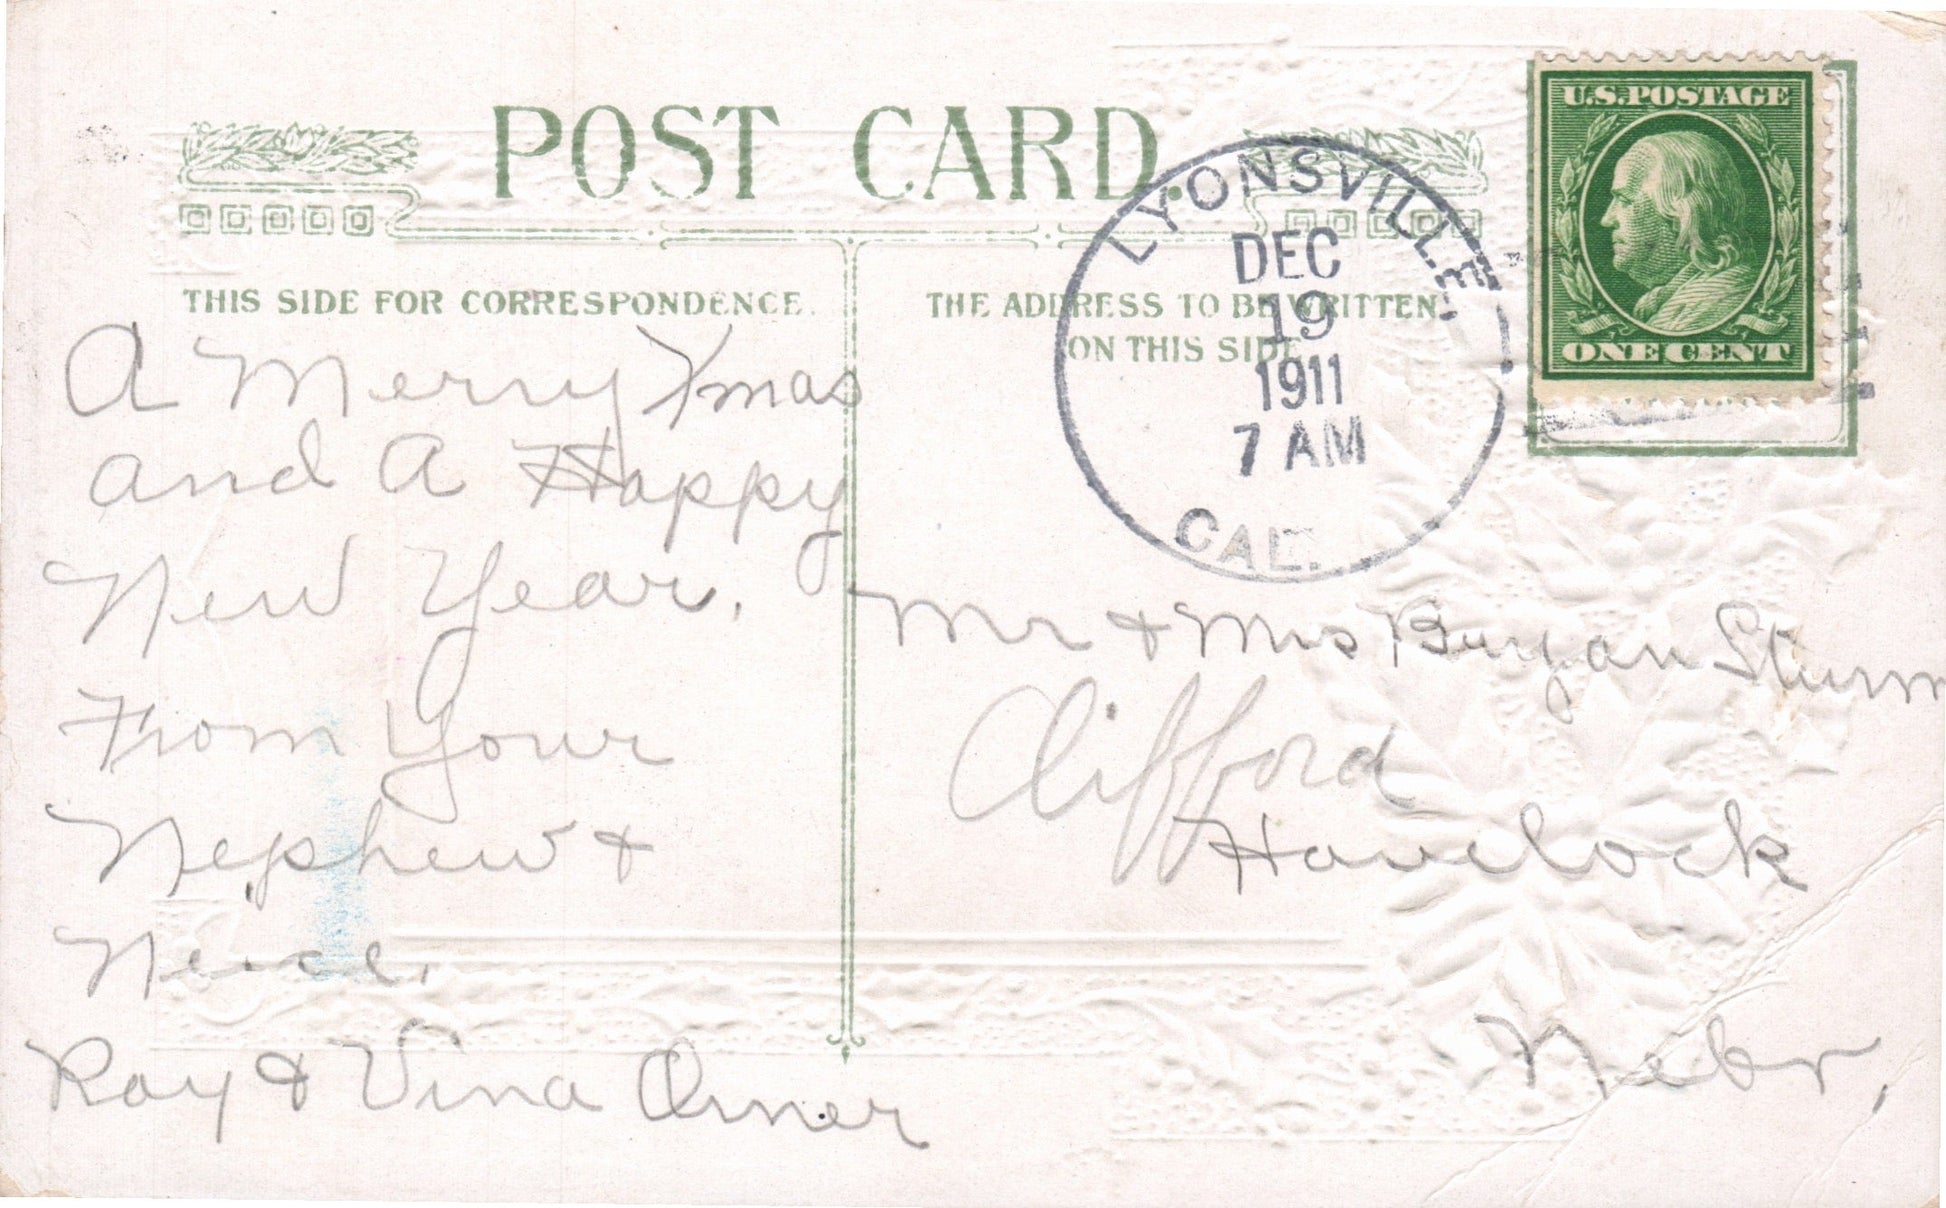 POST CARD.
THIS SIDE FOR CORRESPONDENCE.
THE ADDRESS TO BE WRITTEN
ON THIS SIDE
U.S. POSTAGE
ONE CENT
LYONSVILLE
DEC
19
1911
7 AM
CAL.
A Merry Xmas
and A Happy
New Year.
From Your
Nephew &
Neice.
Ray & Vina
Mr & Mrs Buryan Sturm
Clifford
Havelock
Nebr,